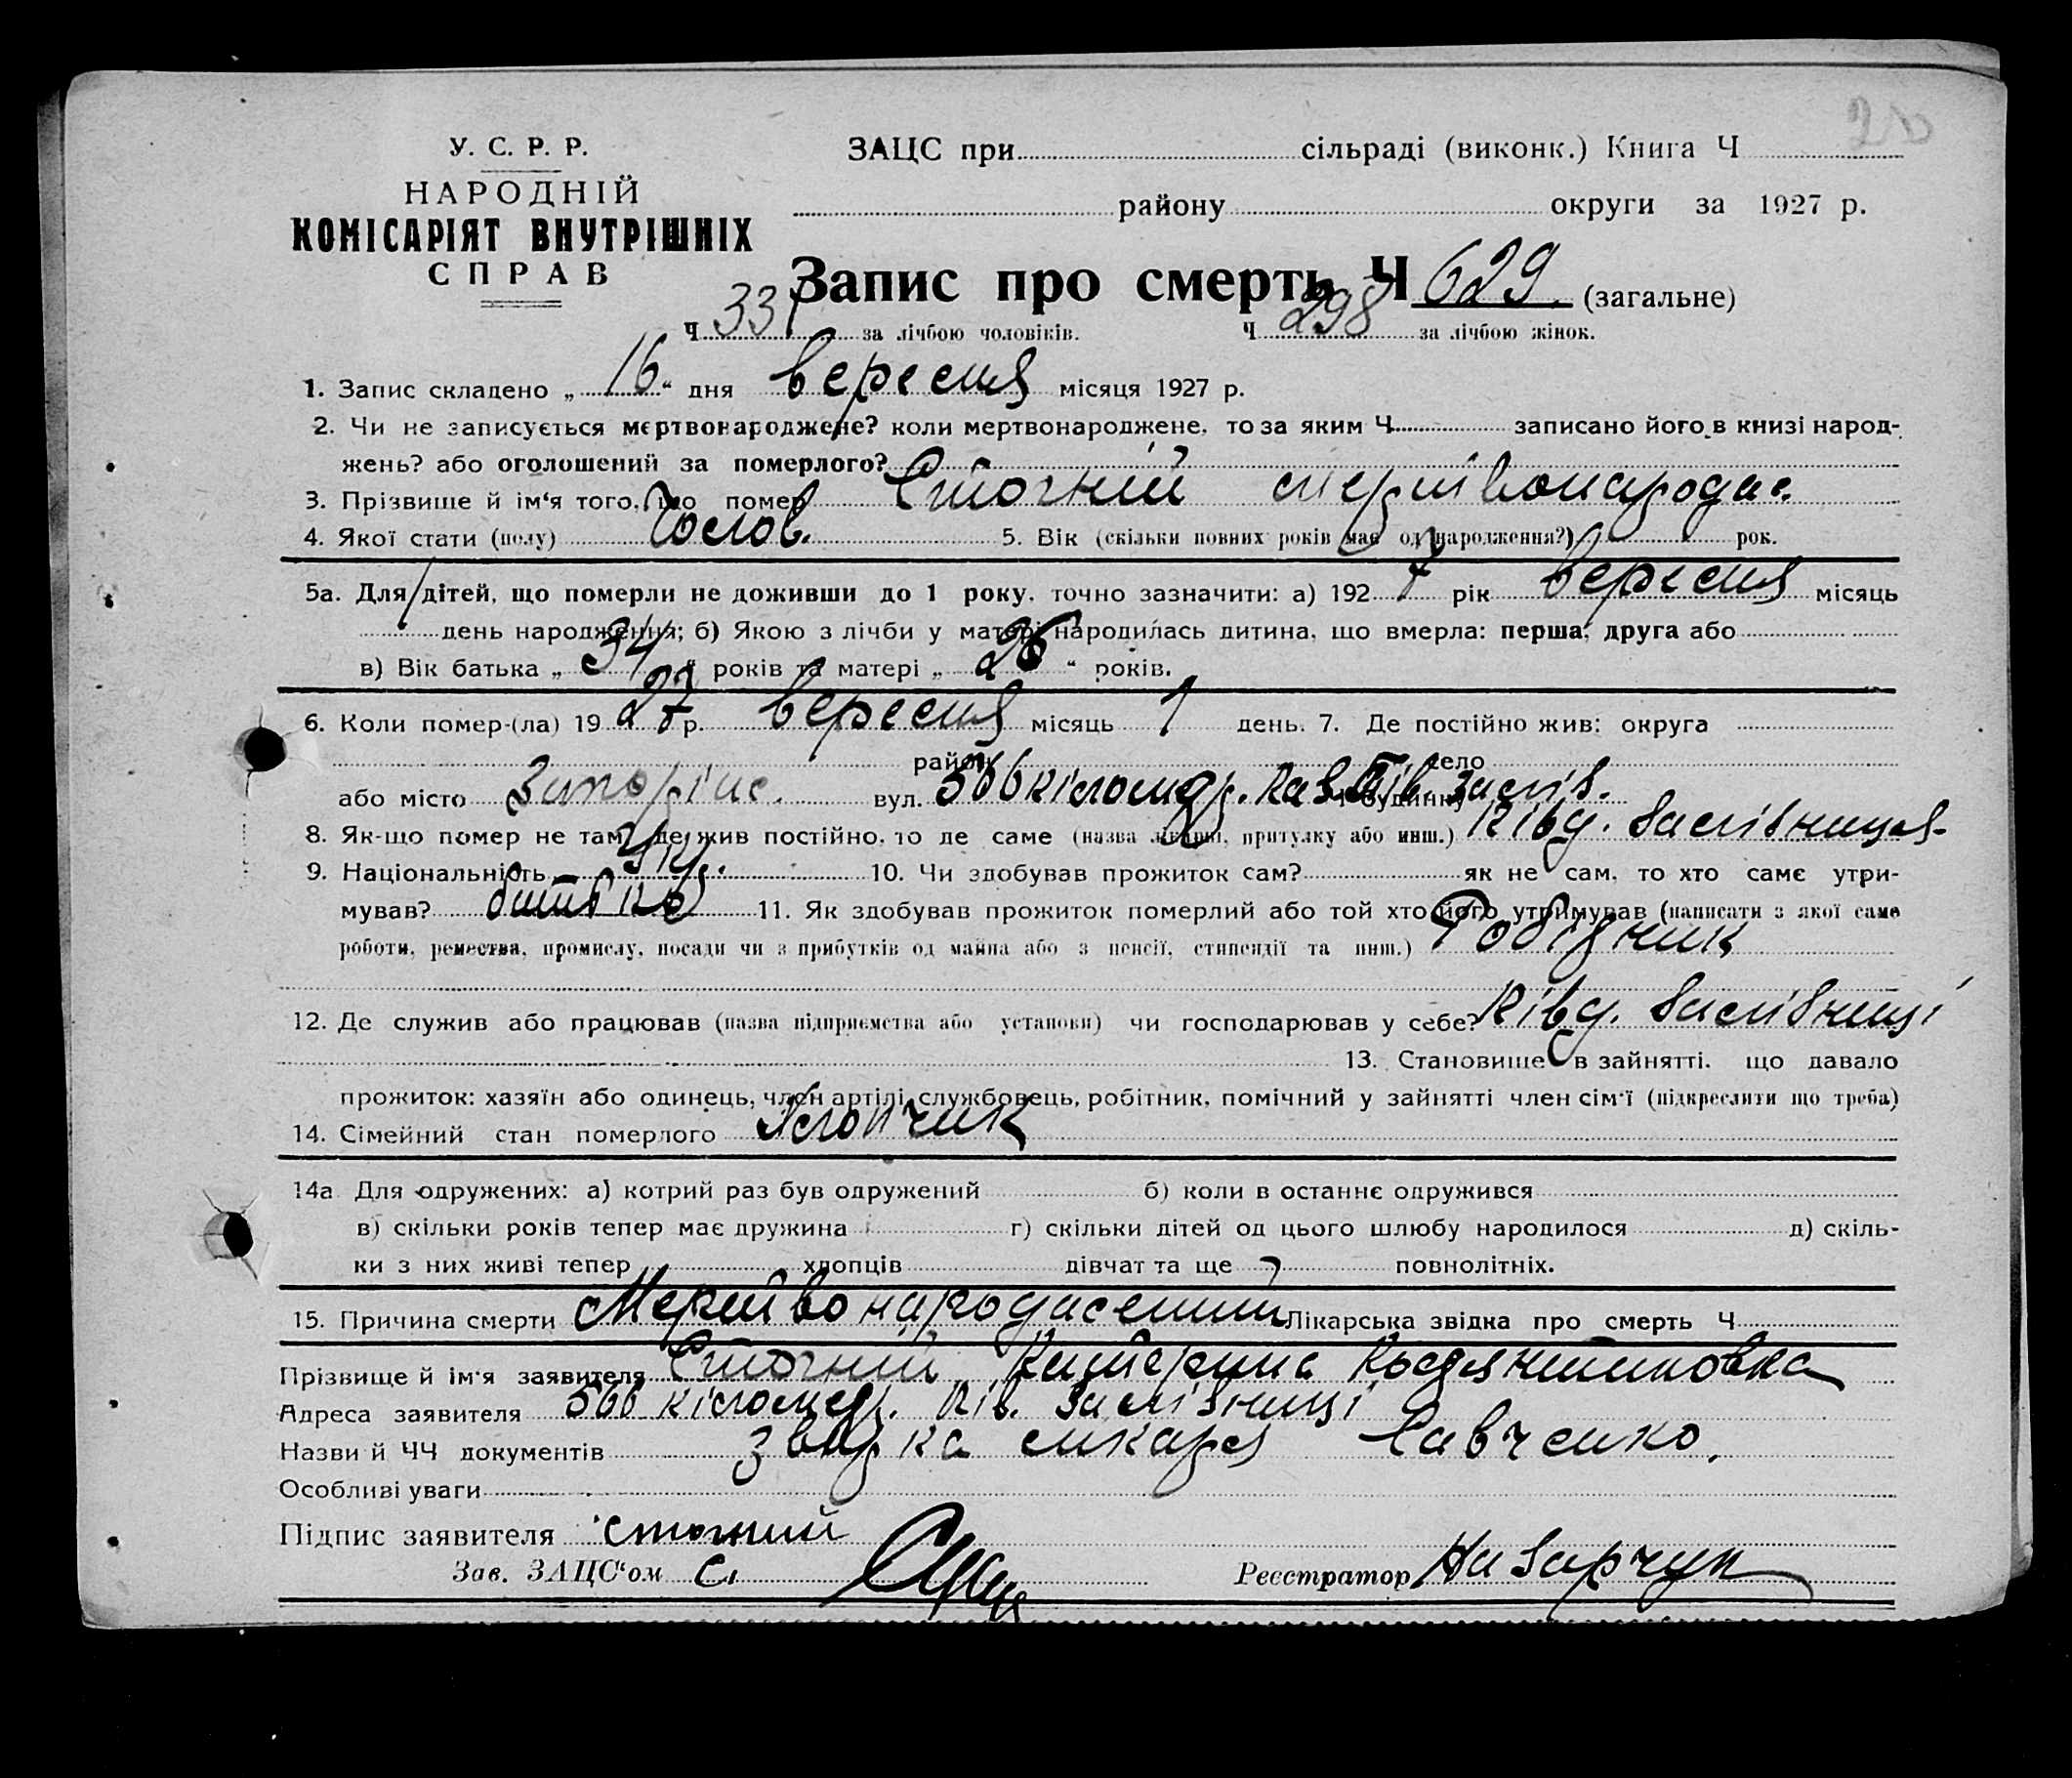 20
У. С. Р. Р.
НАРОДНІЙ
КОМІСАРІЯТ ВНУТРІШНІХ
СПРАВ
ЗАЦС при сільраді (виконк.) Книга Ч
району округи за 1927 р.
Запис про смерть Ч 629 (загальне)
Ч 331 за лічбою чоловіків. Ч 298 за лічбою жінок.
1. Запис складено „ 16 “ дня вересня місяця 1927 р.
2. Чи не записується мертвонароджене? коли мертвонароджене, то за яким Ч записано його в книзі народ-
жень? або оголошений за померлого?
3. Прізвище й ім‘я того, що помер Сточній
4. Якої стати (полу) Чолов. 5. Вік (скільки повних років має од народження?) рок.
5а. Для дітей, що померли не доживши до 1 року, точно зазначити: а) 192 7 рік вересня місяць
1 день народження; б) Якою з лічби у матері народилась дитина, що вмерла: перша, друга або
в) Вік батька „ 34 “ років та матері „ 26 “ років.
6. Коли помер-(ла) 19 27 р. вересня місяць 1 день. 7. Де постійно жив: округа
район село
або місто вул. 566 кілометр. будинку
8. Як-що помер не там, де жив постійно, то де саме (назва лікарні, притулку або инш.)
9. Національність Укр. 10. Чи здобував прожиток сам? як не сам, то хто саме утри-
мував? батько 11. Як здобував прожиток померлий або той хто його утримував (написати з якої саме
роботи, ремества, промислу, посади чи з прибутків од майна або з пенсії, стипендії та инш.) Робітник
12. Де служив або працював (назва підприємства або установи) чи господарював у себе?
13. Становище в зайнятті, що давало
прожиток: хазяїн або одинець, член артілі, службовець, робітник, помічний у зайнятті член сім‘ї (підкреслити що треба)
14. Сімейний стан померлого Хлопчик
14а Для одружених: а) котрий раз був одружений б) коли в останнє одружився
в) скільки років тепер має дружина г) скільки дітей од цього шлюбу народилося д) скіль-
ки з них живі тепер хлопців дівчат та ще повнолітніх.
15. Причина смерти Лікарська звідка про смерть Ч
Прізвище й ім‘я заявителя Сточний Катерина
Адреса заявителя 566 кілометр.
Назви й ЧЧ документів звідка лікаря Савченко.
Особливі уваги
Підпис заявителя сточний
Зав. ЗАЦС‘ом Реєстратор Назарчук